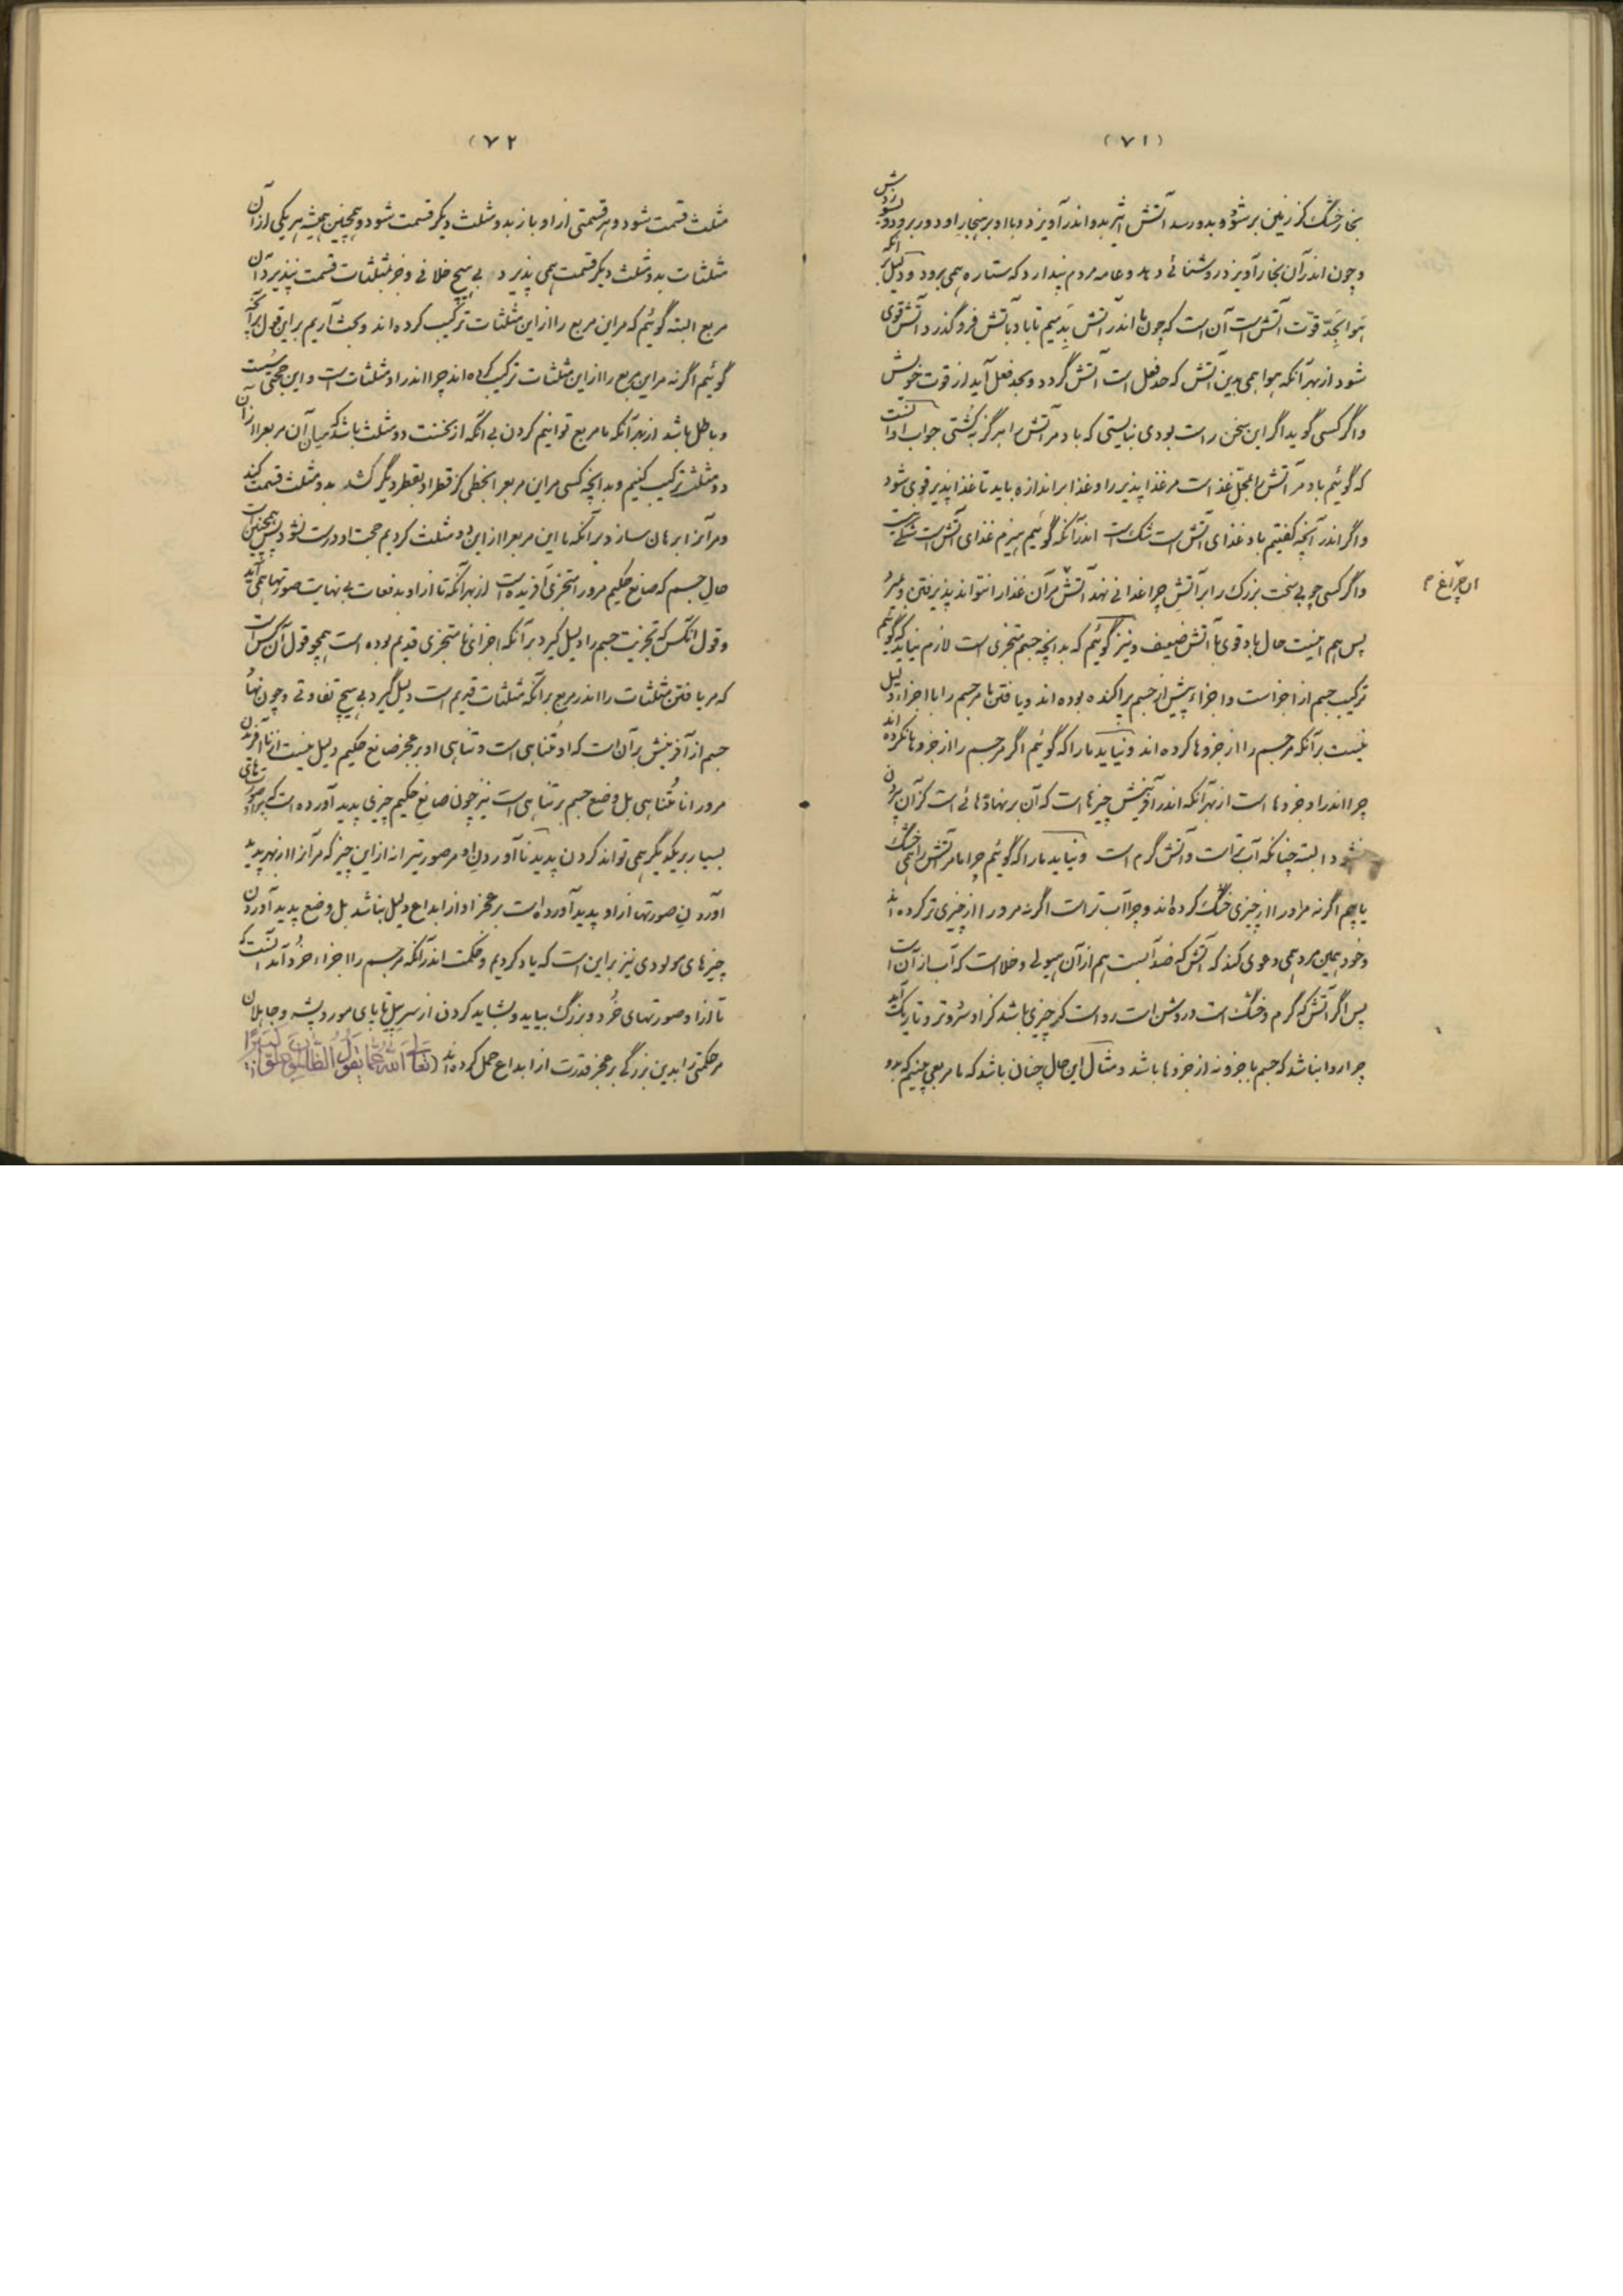 (۷۱)
بخار خشک کز زمین بر شود و بدو رسد آتش اثیر بدو اندر آویزد و با او بر هنجار او دور برود و بسوزدش
و چون اندر آن بخار آویزد روشنائی دهد و عامه مردم پندارد که ستاره همی برود و دلیل بر آنکه
هوا بحدّ قوّت آتش است آن است که چون ما اندر آتش بدمیم تا باد بآتش فرو گذرد آتش قوی
شود از بهر آنکه هوا همی بدین آتش که حد فعل است آتش گردد و بحد فعل آید از قوت خویش
و اگر کسی گوید اگر این سخن راست بودی نبایستی که باد مر آتش را هرگز بکشتی جواب او آنست
که گوئیم باد مر آتش را بمحل غذاست مر غذا پذیر را و غذا بر اندازه باید تا غذا پذیر قوی شود
و اگر اندر آنچه گفتیم باد غذای آتش است شک است اندر آنکه گوئیم هیزم غذای آتش است شکی نیست
و اگر کسی چوبی سخت بزرگ را بر آتش چراغدانی نهد آتش مر آن غذا را نتواند پذیرفتن و بمیرد
آن چراغ م
پس هم اینست حال باد قوی با آتش ضعیف و نیز گوئیم که بدانچه جسم متجزی است لازم نیاید که گوئیم
ترکیب جسم از اجزاست و اجزاء پیش از جسم پراکنده بوده اند و یافتن ما مر جسم را با اجزاء دلیل
نیست بر آنکه مر جسم را از جزوها کرده اند و نیاید ما را که گوئیم اگر مر جسم را از جزوها نکرده اند
چرا اندر او جزوها است از بهر آنکه اندر آفرینش چیزها است که آن بر نهادهائی است کز آن برون
نشود البته چنانکه آب تر است و آتش گرم است و نیاید ما را که گوئیم چرا ما مر آتش را همی خشک
یابیم اگر نه مر او را از چیزی خشک کرده اند و چرا آب تر است اگر نه مر او را از چیزی تر کرده اند
و خود همین مرد همی دعوی کند که آتش که ضد آبست هم از آن هیولی و خلا است که آب از آن است
پس اگر آتش که گرم و خشک است و روشن است رواست کز چیزی باشد کز او سرد و تر و تاریک آید
چرا روا نباشد که جسم با جزو نه از جزوها باشد و مثال این حال چنان باشد که ما مربعی بینیم که بدو
(۷۲)
مثلث قسمت شود و هر قسمتی از او باز بدو مثلث دیگر قسمت شود و همچنین همیشه هر یکی از آن
مثلثات بدو مثلث دیگر قسمت همی پذیرد بی هیچ خلافی و جز بمثلثات قسمت نپذیرد آن
مربع البته گوئیم که مر این مربع را از این مثلثات ترکیب کرده اند و بحث آریم بر این قول بر آنچه
گوئیم اگر نه مر این مربع را از این مثلثات ترکیب کرده اند چرا اندر او مثلثات است و این حجتی سست
و باطل باشد از بهر آنکه ما مربع توانیم کردن بی آنکه از نخست دو مثلث باشد که میان آن مربع را از آن
دو مثلث ترکیب کنیم و بدانچه کسی مر این مربع را بخطی کز قطر او بقطر دیگر کشد بدو مثلث قسمت کند
و مر آنرا برهان سازد بر آنکه ما این مربع را از این دو مثلث کردیم حجت او درست نشود پس همچنین است
حال جسم که صانع حکیم مر او را متجزی آفریده است از بهر آنکه تا از او بدفعات بی نهایت صورتها همی آید
و قول آنکس که تجزیت جسم را دلیل گیرد بر آنکه اجزای نامتجزی قدیم بوده است همچو قول آن کس است
که مر یافتن مثلثات را اندر مربع بر آنکه مثلثات قدیم است دلیل گیرد بی هیچ تفاوتی و چون نهاد
جسم از آفرینش بر آن است که او متناهی است و تناهی او بر عجز صانع حکیم دلیل نیست از نا آفریدن
مر او را نامتناهی بل وضع جسم بر تناهی است نیز چون صانع حکیم چیزی پدید آورده است که بر او صورتهای
بسیار بر یکدیگر همی تواند کردن پدید نا آوردن او مر صورتیرا نه از این چیز که مر آنرا از بهر پدید
آوردن صورتها از او پدید آورده است بر عجز او از ابداع دلیل نباشد بل وضع پدید آوردن
چیزهای مولودی نیز بر این است که یاد کردیم و حکمت اندر آنکه مر جسم را اجزاء خرد آمد آنست که
تا از او صورتهای خرد و بزرگ بیاید و بشاید کردن از سر پیل تا پای مور و پشه و جاهلان
مر حکمتی را بدین بزرگی بر عجز قدرت از ابداع حمل کرده اند (تعالی الله عما یقول الظالمون علوا کبیرا)